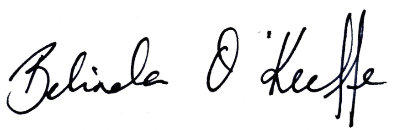 Belinda O'Keeffe